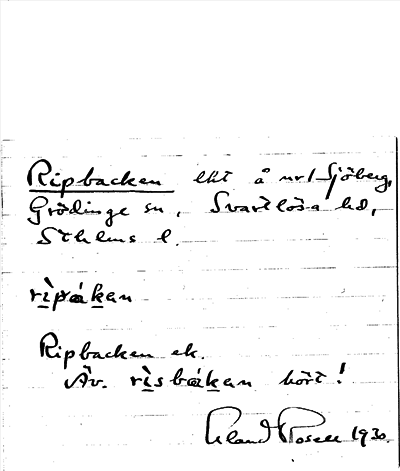 Ripbacken lht å nr 1 Sjöberg,
Grödinge sn, Svartlösa hd,
Sthlms l.
rìpákan
Ripbacken ek.
Äv. rìsbákan hört!
Erland Rosell 1930.